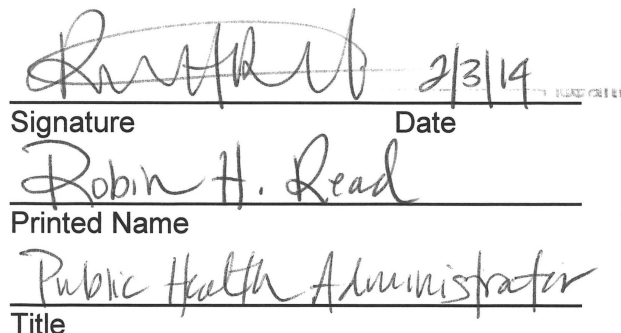 2/3/14
Signature Date
Robin H. Read
Printed Name
Public Health Administrator
Title